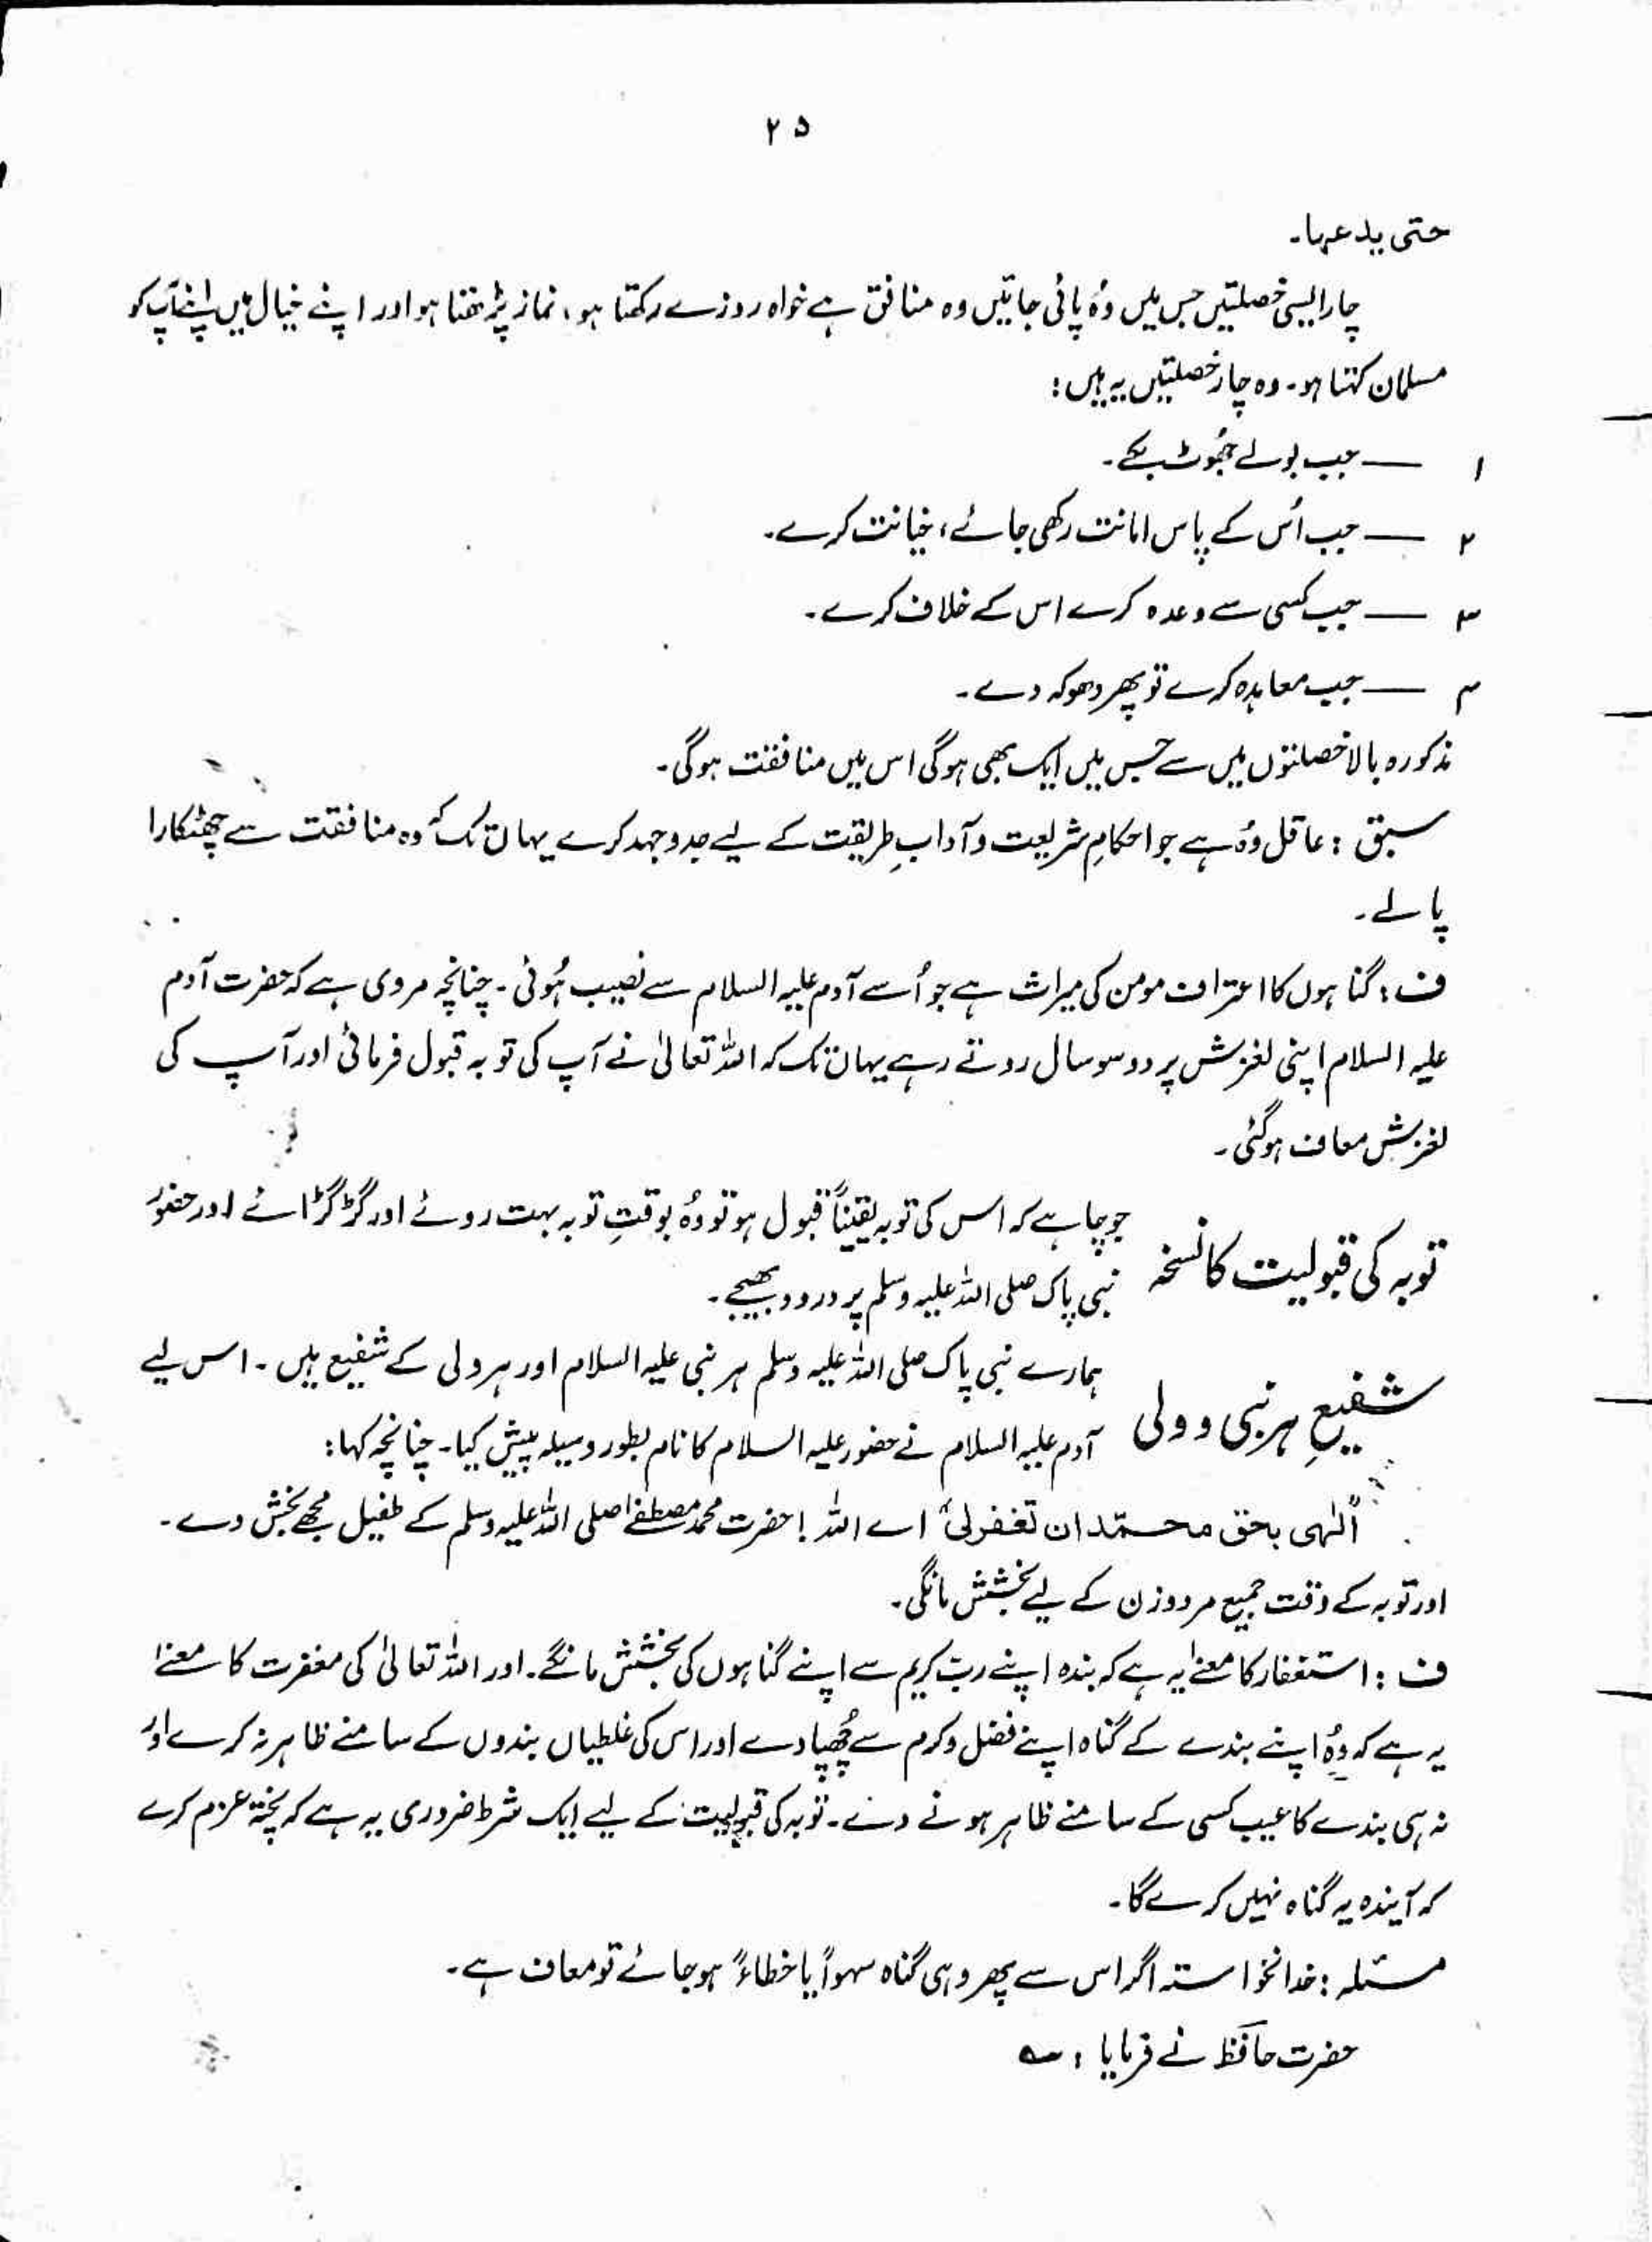 ۲۵
حتی یدعہا۔
چار ایسی خصلتیں جس میں وُہ پائی جائیں وہ منافق ہے خواہ روزے رکھتا ہو، نماز پڑھتا ہو اور اپنے خیال میں اپنے آپ کو
مسلمان کہتا ہو۔ وہ چار خصلتیں یہ ہیں:
۱ — جب بولے جھُوٹ بکے۔
۲ — جب اُس کے پاس امانت رکھی جائے، خیانت کرے۔
۳ — جب کسی سے وعدہ کرے اس کے خلاف کرے۔
۴ — جب معاہدہ کرے تو پھر دھوکہ دے۔
مذکورہ بالا خصلتوں میں سے جس میں ایک بھی ہوگی اس میں منافقت ہوگی۔
سبق : عاقل وُہ ہے جو احکامِ شریعت و آدابِ طریقت کے لیے جدوجہد کرے یہاں تک کہ وہ منافقت سے چھٹکارا
پالے۔
ف : گناہوں کا اعتراف مومن کی میراث ہے جو اُسے آدم علیہ السلام سے نصیب ہُوئی۔ چنانچہ مروی ہے کہ حضرت آدم
علیہ السلام اپنی لغزش پر دو سو سال روتے رہے یہاں تک کہ اللہ تعالیٰ نے آپ کی توبہ قبول فرمائی اور آپ کی
لغزش معاف ہوگئی۔
توبہ کی قبولیت کا نسخہ جو چاہے کہ اس کی توبہ یقیناً قبول ہو تو وُہ بوقتِ توبہ بہت روئے اور گڑگڑائے اور حضور
نبی پاک صلی اللہ علیہ وسلم پر درود بھیجے۔
شفیعِ ہر نبی و ولی ہمارے نبی پاک صلی اللہ علیہ وسلم ہر نبی علیہ السلام اور ہر ولی کے شفیع ہیں۔ اس لیے
آدم علیہ السلام نے حضور علیہ السلام کا نام بطور وسیلہ پیش کیا۔ چنانچہ کہا:
"الٰہی بحق محمّد ان تغفرلی" اے اللہ! حضرت محمد مصطفےٰ صلی اللہ علیہ وسلم کے طفیل مجھے بخش دے۔
اور توبہ کے وقت جمیع مرد و زن کے لیے بخشش مانگی۔
ف : استغفار کا معنےٰ یہ ہے کہ بندہ اپنے ربّ کریم سے اپنے گناہوں کی بخشش مانگے۔ اور اللہ تعالیٰ کی مغفرت کا معنےٰ
یہ ہے کہ وُہ اپنے بندے کے گناہ اپنے فضل و کرم سے چُھپا دے اور اس کی غلطیاں بندوں کے سامنے ظاہر نہ کرے اور
نہ ہی بندے کا عیب کسی کے سامنے ظاہر ہونے دے۔ توبہ کی قبولیت کے لیے ایک شرط ضروری یہ ہے کہ پختہ عزم کرے
کہ آیندہ یہ گناہ نہیں کرے گا۔
مسئلہ : خدانخواستہ اگر اس سے پھر وہی گناہ سہواً یا خطاءً ہوجائے تو معاف ہے۔
حضرت حافظؔ نے فرمایا : ؎